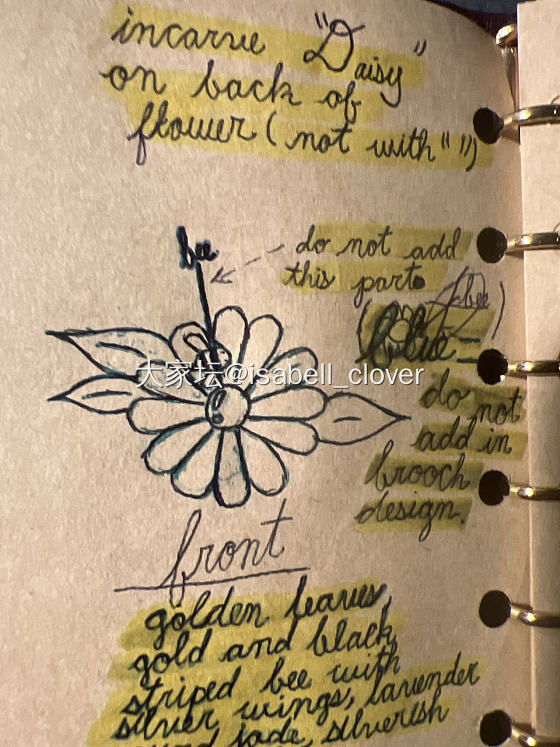 incarve "Daisy"
on back of
flower (not with " ")
bee
do not add
this part
(bee)
blue
大家坛@isabell_clover
do not
add in
brooch
design.
front
golden leaves,
gold and black
striped bee with
silver wings, lavender
jade, silverish